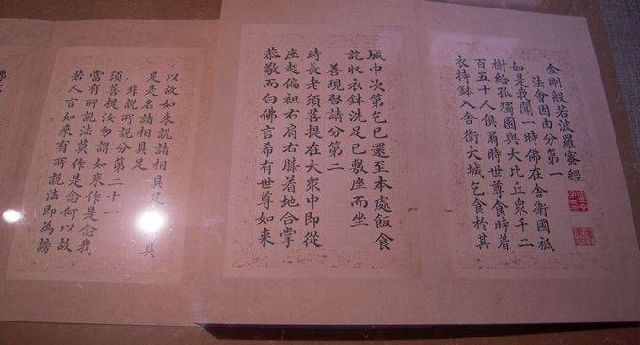 金剛般若波羅蜜經
法會因由分第一
如是我聞一時佛在舍衛國祇
樹給孤獨園與大比丘眾千二
百五十人俱爾時世尊食時着
衣持鉢入舍衛大城乞食於其
城中次第乞已還至本處飯食
訖收衣鉢洗足已敷座而坐
善現啟請分第二
時長老須菩提在大眾中即從
座起偏袒右肩右膝着地合掌
恭敬而白佛言希有世尊如來
以故如來說諸相具足具
足是名諸相具足
非說所說分第二十一
須菩提汝勿謂如來作是念我
當有所說法莫作是念何以故
若人言如來有所說法即為謗